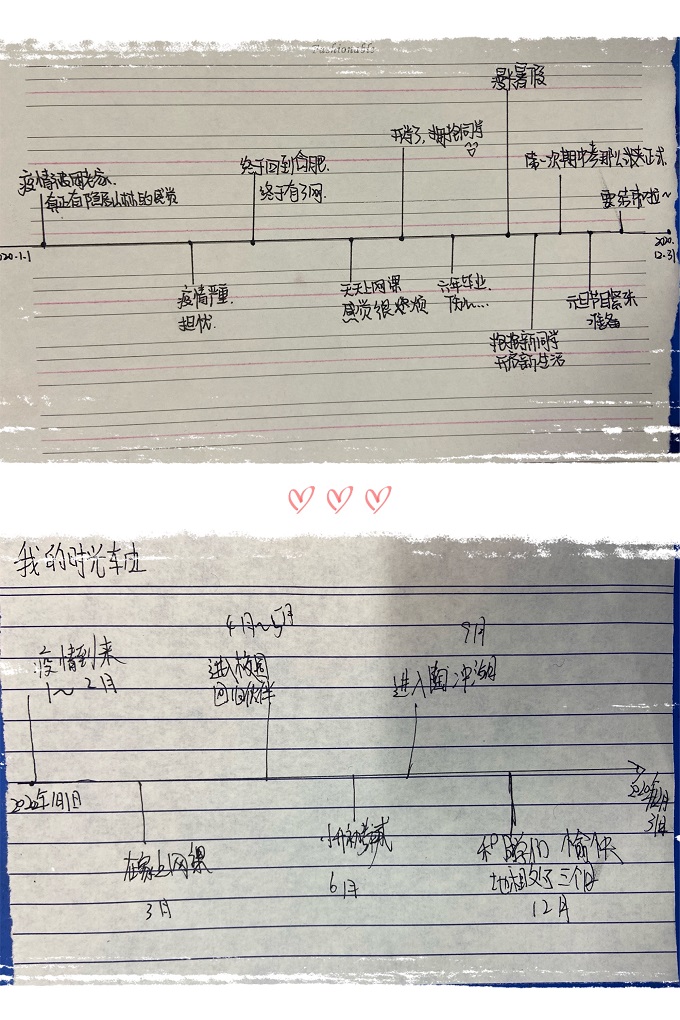 疫情被困老家.
真正有隐居山林的感觉
终于回到合肥.
终于有了网.
开学了,拥抱同学
漫长暑假
第一次期中考那么正式
要结束啦~
2020.1.1
2020.
12.31
疫情严重.
担忧.
天天上网课
感觉很烦
六年毕业.
拥抱新同学
开启新生活
元旦节目紧张
准备
我的时光车辙
疫情到来
1~2月
4月~5月
进入校园
回归伙伴
9月
进入陶冲湖
2020年1月1日
2020年12月
31日
在家上网课
3月
小升初考试
6月
和同学们愉快
地相处了三个月
12月